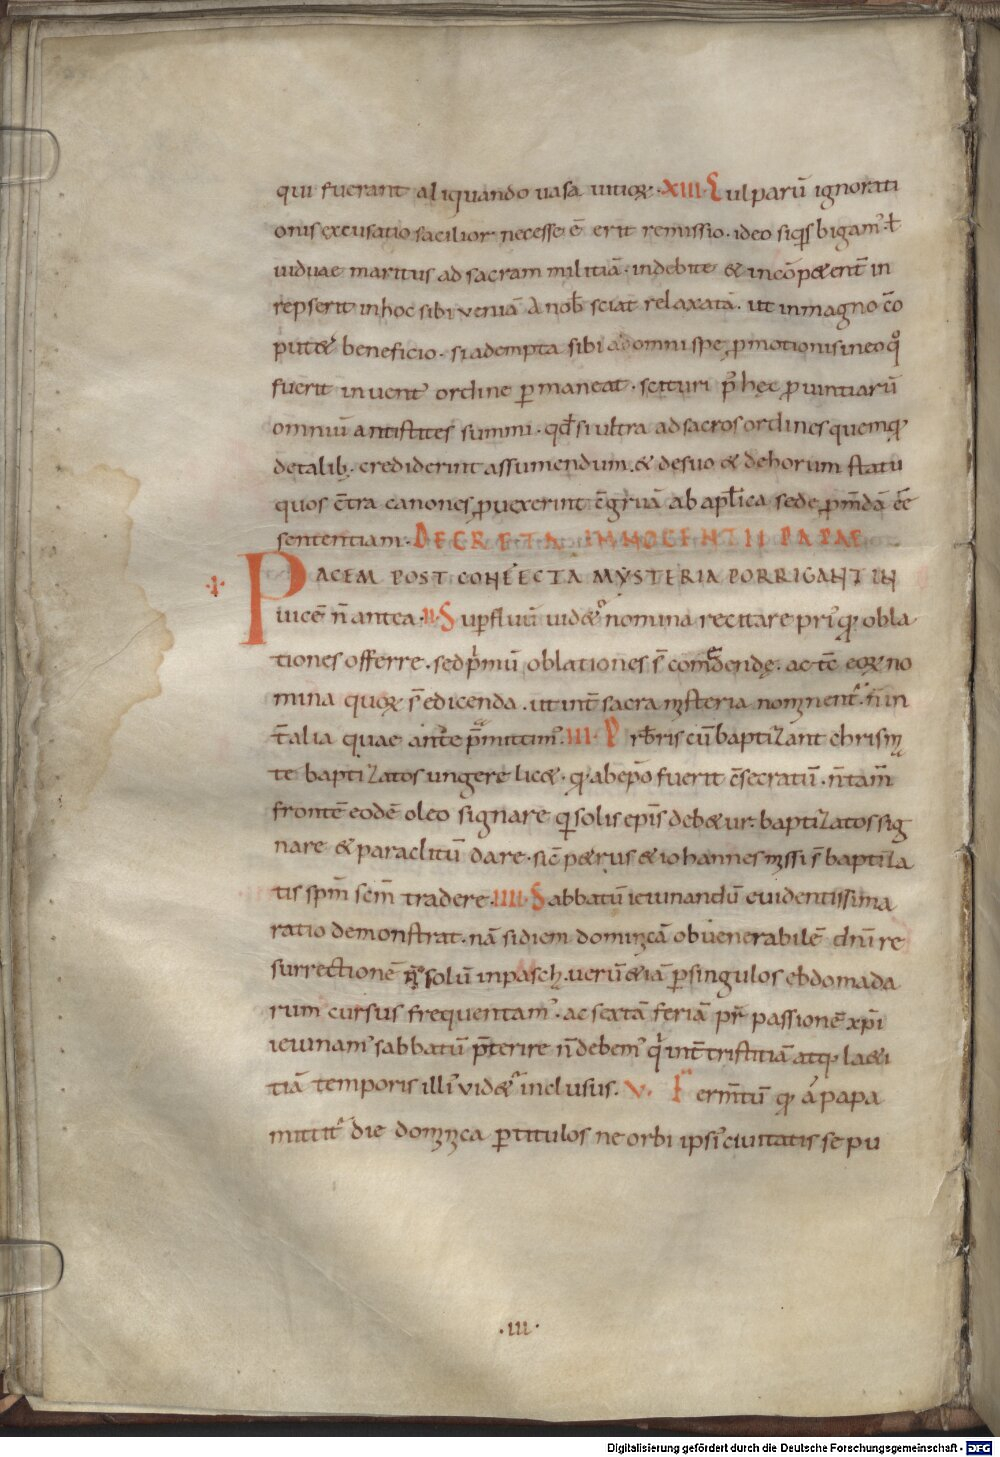 qui fuerant aliquando uasa uitioꝝ · XIII · Culparū ignorati
onis excusatio facilior necesse ē erit remissio · ideo siq̄s bigam' · ł
uiduae maritus ad sacram militiā · indebite & incōpetent̄ in
repserit in hoc sibi veniā A nob̄ sciat relaxatā · ut in magno cō
put& beneficio · si adempta sibi ad omni spe ꝓmotionis in eo q̊
fuerit inuent' ordine ꝑmaneat · scituri p̄ hęc ꝓuintiarū
omniū antistites summi · qđ si ultra ad sacros ordines quemq
de talib; crediderint assumendum · & de suo & de horum statu
quos c̄tra canones ꝓuexerint c̄gruā ab apl̄ica sede ꝓmdā ēē
sententiam · DECRETA INNOCENTII PAPAE
·I· PACEM POST CONFECTA MYSTERIA PORRIGANT IN
uicē n̄ antea · II · Suꝑfluū uidet' nomina recitare pri' q obla
tiones offerre · sed p̄mū oblationes s̄ comdendę · ac tc̄ eoꝝ no
mina quoꝝ s̄ edicenda · ut int̄ sacra mysteria nominent' · n̄ in
t̄ alia quae ante p̄mittim' · III · Prb̄ris cū baptizant chrism
te baptizatos ungere lic& · q ab epō fuerit c̄secratū · n̄ tam̄
frontē eodē oleo signare q solis epīs deb&ur · baptizatos sig
nare & paraclitū dare · sic̄ petrus & iohannes missi s̄ baptiza
tis spm̄ scm̄ tradere · IIII · Sabbatū ieiunandū euidentissima
ratio demonstrat · nā si diem dominicā ob uenerabilē dnī re
surrectionē n̄ solū in pasch · verū &iā ꝑ singulos ebdomada
rum cursus frequentam' · ac sextā feriā pr̄ passionē xp̄i
ieiunam' sabbatū p̄terire n̄ debem' q̇ int̄ tristitiā atq; la&i
tiā temporis illi' vid&' inclusus · V · Ferm̄tū q a' papa
mittit' die dominica ꝑ titulos ne orbi ipsi' ciuitatis se pu
· III ·
Digitalisierung gefördert durch die Deutsche Forschungsgemeinschaft - DFG